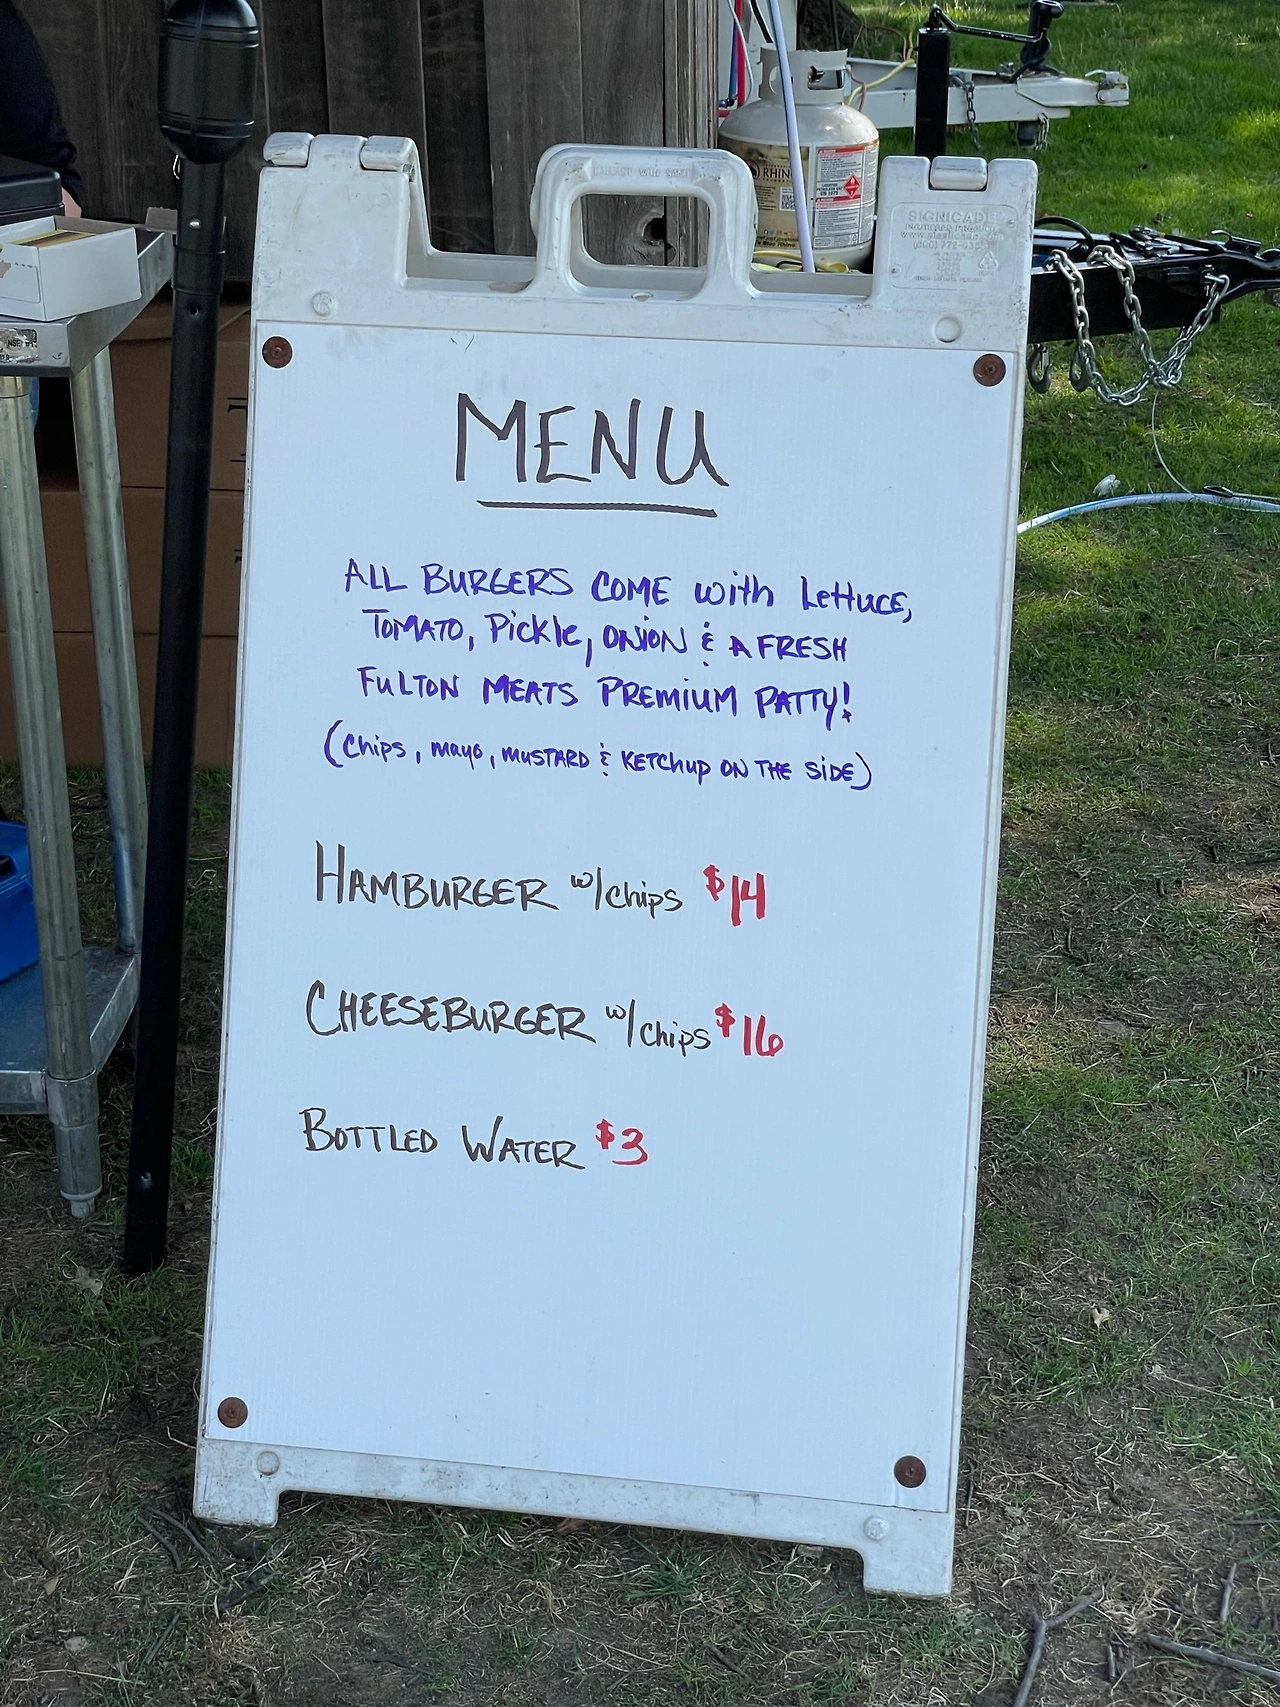 RHINO
SIGNICADE
MENU
ALL BURGERS COME with Lettuce,
TOMATO, Pickle, ONION & A FRESH
FULTON MEATS PREMIUM PATTY!
(Chips, mayo, MUSTARD & KETChup ON THE SIDE)
HAMBURGER w/chips $14
CHEESEBURGER w/chips $16
BOTTLED WATER $3